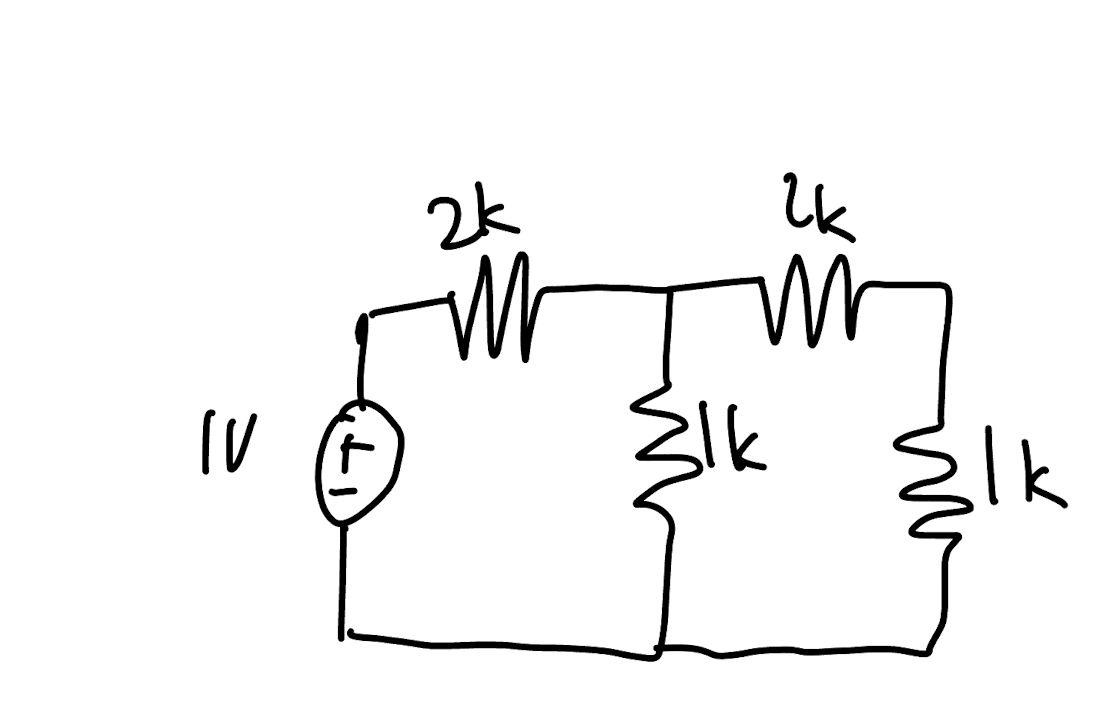 2k
2k
1V
+
-
1k
1k